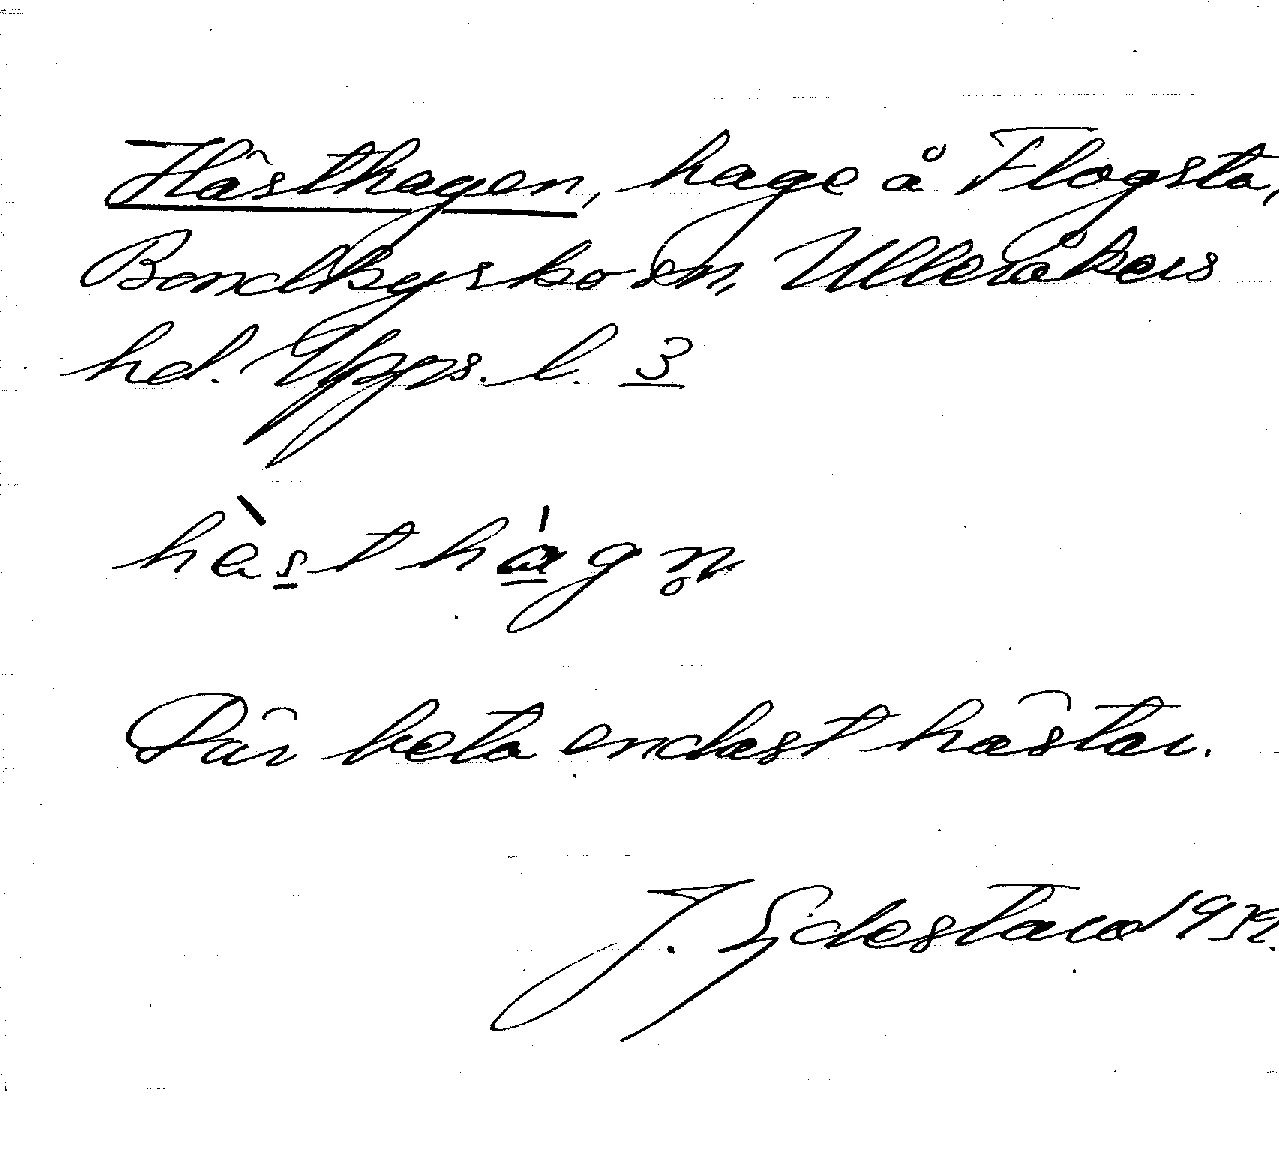 Hästhagen, hage å Flogsta,
Bondkyrko sn, Ulleråkers
hd. Upps. l. 3
hàsthágn̥
Där beta endast hästar.
J. 1939.